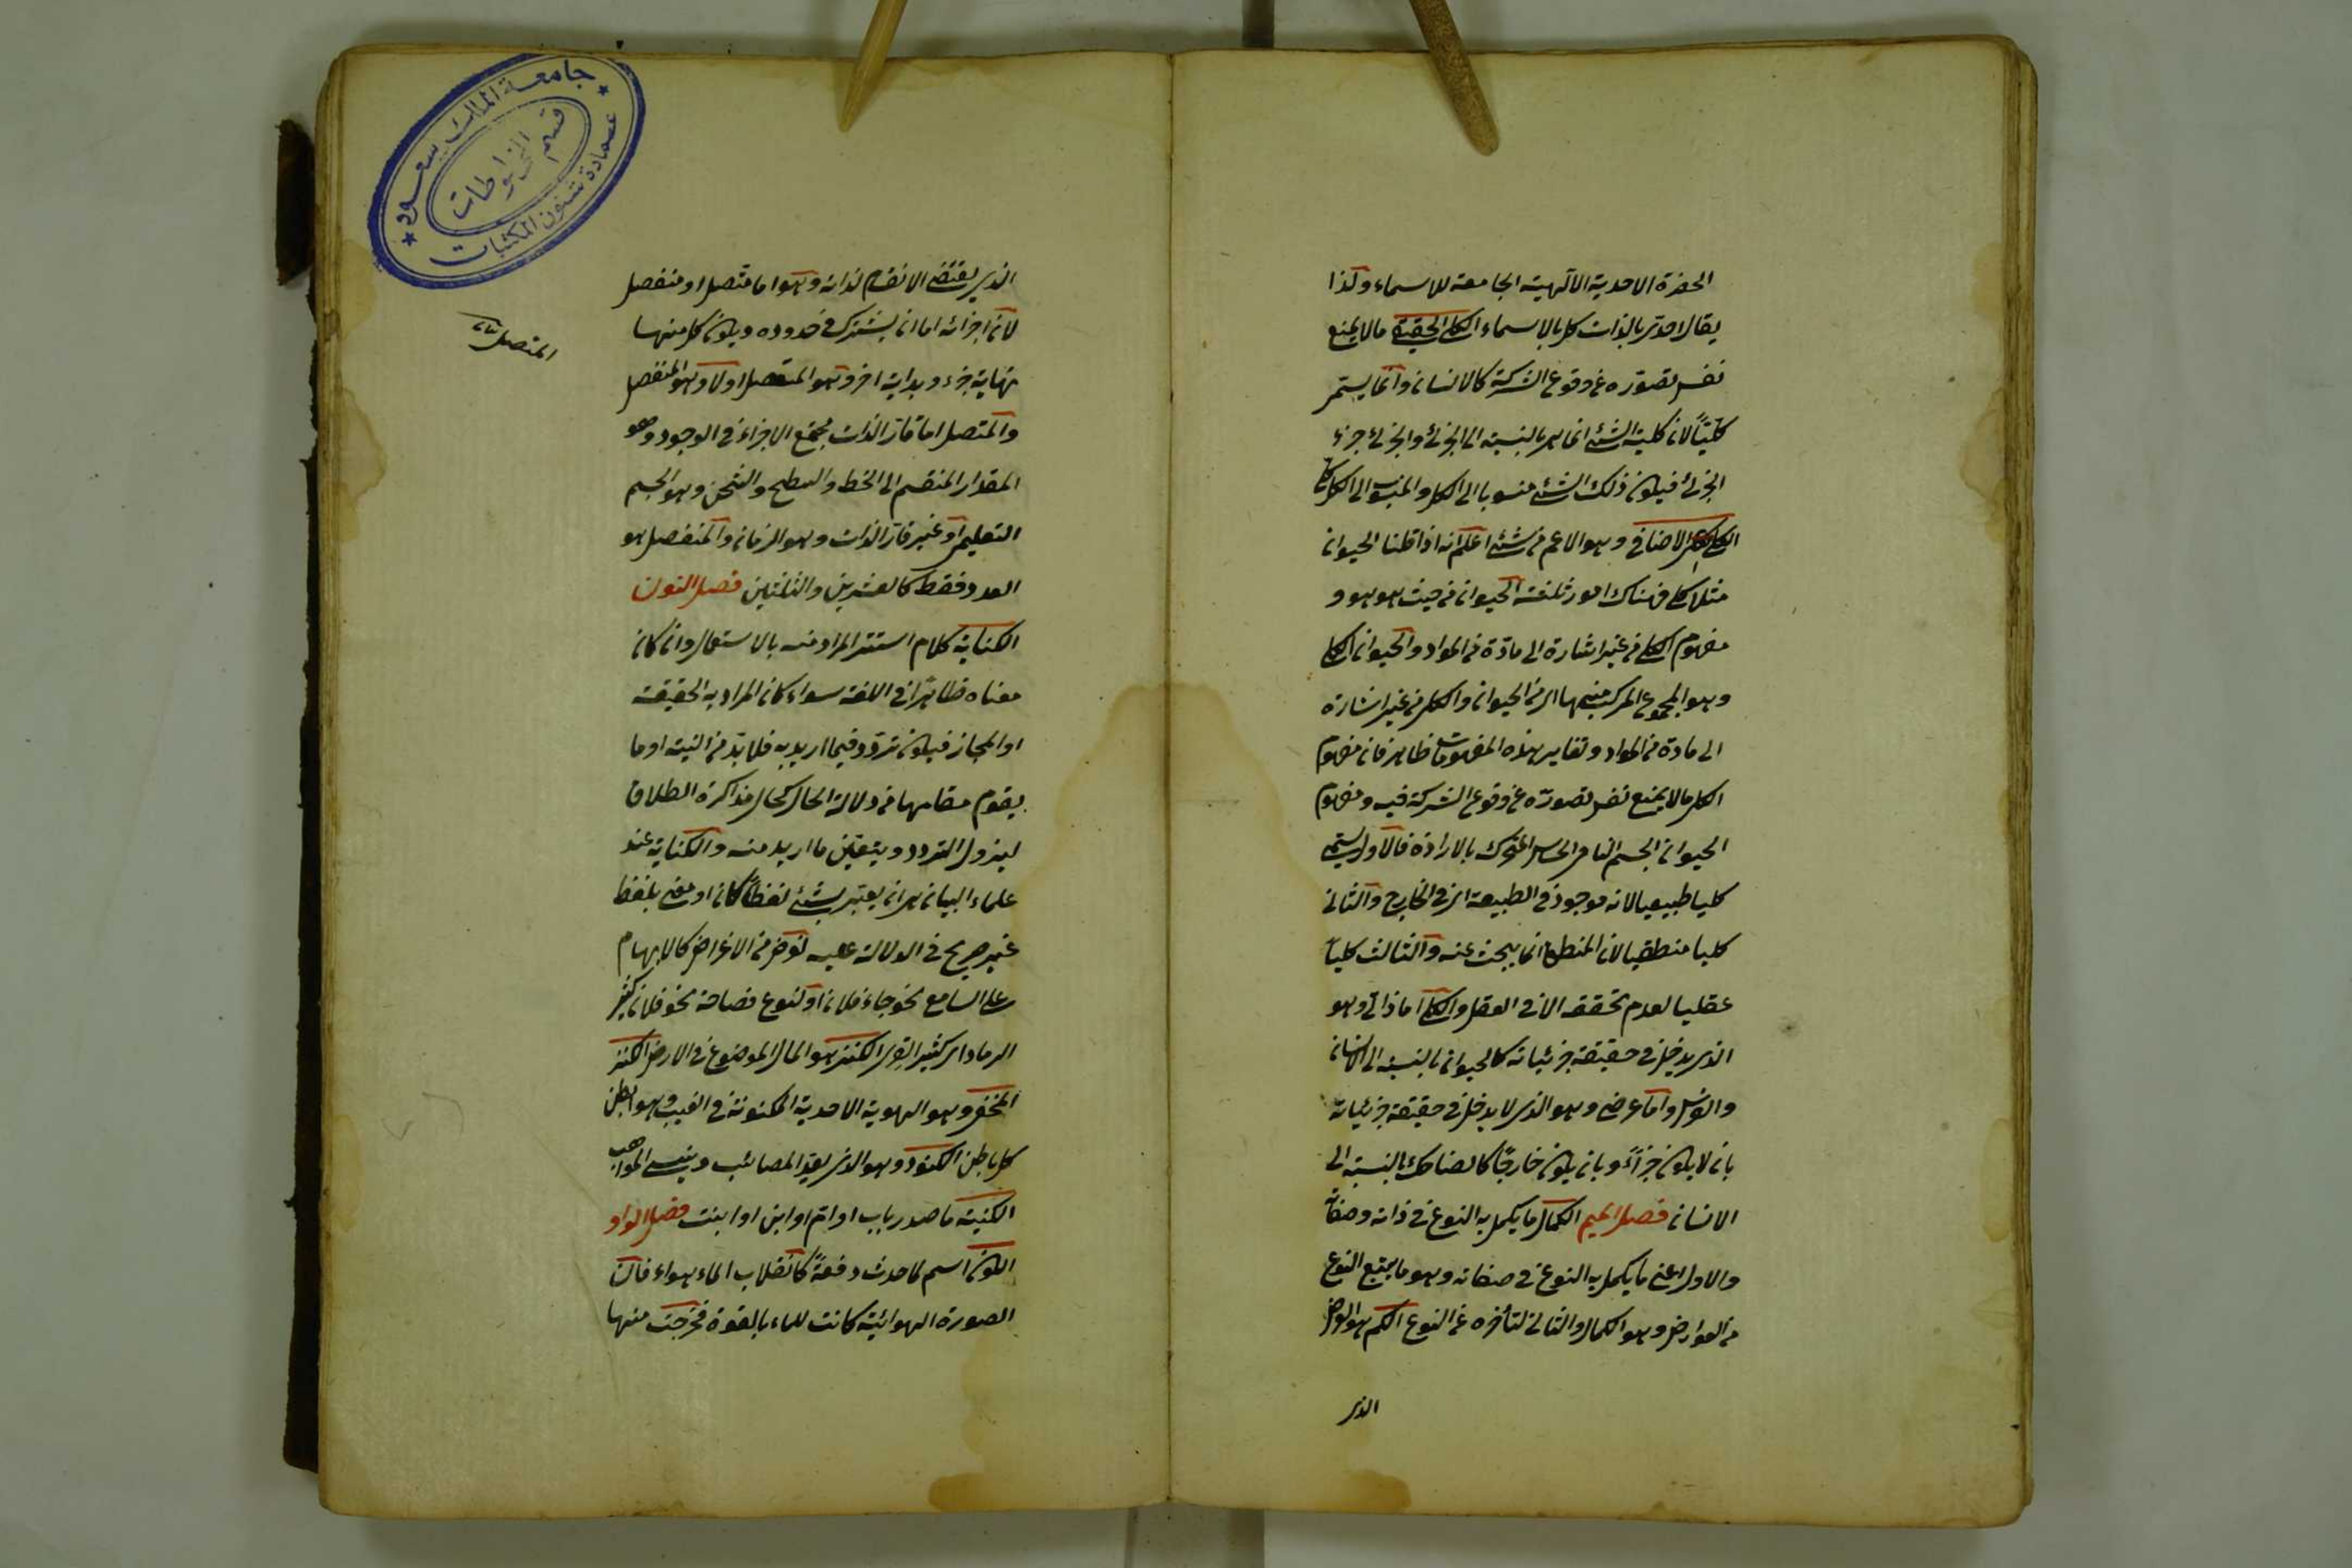 الحضرة الاحدية الآلهية الجامعة للاسماء ولذا
يقال احد بالذات كل بالاسماء الكلي الحقيقي مالا يمنع
نفس تصوره عن وقوع الشركة كالانسان وانما يسمى
كليًا لان كلية الشئ انما هي بالنسبة الى الجزئي والجزئي جزء
الجزئي فيكون ذلك الشئ منسوبا الى الكل والمنسوب الى الكل كلي
الكلي الاضافي وهو الاعم من شئ اعلم انه اذا قلنا الحيوان
مثلا كلي فهناك امور ثلثة الحيوان من حيث هو هو و
مفهوم الكلي من غير اشارة الى مادة من المواد والحيوان الكلي
وهو المجموع المركب منهما اى من الحيوان والكلي من غير اشارة
الى مادة من المواد وتغاير هذه المفهومات ظاهر فان مفهوم
الكلي مالا يمنع نفس تصوره عن وقوع الشركة فيه ومفهوم
الحيوان الجسم النامي الحساس المتحرك بالارادة فالاول يسمى
كليا طبيعيا لانه موجود في الطبيعة اى في الخارج والثاني
كليا منطقيا لان المنطق انما يبحث عنه والثالث كليا
عقليا لعدم تحققه الا في العقل والكلي اما ذاتي وهو
الذى يدخل في حقيقة جزئياته كالحيوان بالنسبة الى الانسان
والفرس واما عرضي وهو الذى لا يدخل في حقيقة جزئياته
بان لا يكون جزأً وبان يكون خارجًا كالضاحك بالنسبة الى
الانسان فصل الميم الكمال ما يكمل به النوع في ذاته وصفاته
والاول اعني ما يكمل به النوع في صفاته وهو ما يتبع النوع
من العوارض وهو الكمال والثاني لتأخره عن النوع الكم هو العرض
الذى
الذى يقتضي الانقسام لذاته وهو اما متصل او منفصل
لان اجزائه اما ان يشترك في حدوده ويكون كل منها
نهاية جزء وبداية اخر وهو المتصل اولا وهو المنفصل
والمتصل اما قار الذات مجتمع الاجزاء في الوجود وهو
المقدار المنقسم الى الخط والسطح والثخن وهو الجسم
التعليمي او غير قار الذات وهو الزمان والمنفصل هو
العدد فقط كالعشرين والثلثين فصل النون
الكناية كلام استتر المراد منه بالاستعمال وان كان
معناه ظاهرًا في اللغة سواء كان المراد به الحقيقة
او المجاز فيكون تردد فيما اريد به فلا بد من النية او ما
يقوم مقامها من دلالة الحال كحال مذاكرة الطلاق
ليزول التردد ويتعين ما اريد منه والكناية عند
علماء البيان هي ان يعتبر بشئ لفظًا كان او معنى بلفظ
غير صريح في الدلالة عليه لغرض من الاغراض كالابهام
على السامع نحو جاء فلان او لنوع فصاحة نحو فلان كثير
الرماد اى كثير القرى الكنز هو المال الموضوع في الارض الكنز
المخفي وهو الهوية الاحدية المكنونة في الغيب وهو ابطن
كل باطن الكنود وهو الذى يعد المصائب وينسى المواهب
الكنية ما صدر باب او ام او ابن او ابنت فصل الواو
الكون اسم لما حدث دفعة كانقلاب الماء هواء فان
الصورة الهوائية كانت للماء بالقوة فخرجت منها
جامعة الملك سعود
قسم المخطوطات
عمادة شئون المكتبات